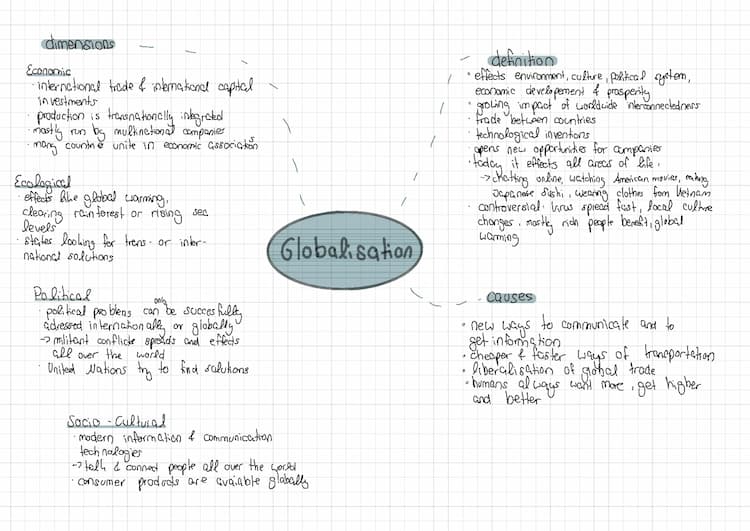 dimensions
Economic
· international trade & international capital
investments
· production is transnationally integrated
· mostly run by multinational companies
· many countrie unite in economic associations
Ecological
· effects like global warming,
clearing rainforest or rising sea
levels
· states looking for trans- or inter-
national solutions
Political
· political problems can only be succesfully
adressed internationally or globally
→ militant conflicts spreads and effects
all over the world
· United Nations try to find solutions
Socio - Cultural
· modern information & communication
technologies
→ talk & connect people all over the world
· consumer products are avaiable globally
Globalisation
definition
· effects environment, culture, political system,
economic developement & prosperity
· growing impact of worldwide interconnectedness
· trade between countries
· technological inventions
· opens new opportunities for companies
· today it effects all areas of life,
→ chatting online, watching American movies, making
Japanese Sushi, wearing clothes from Vietnam
· controversial: virus spread fast, local culture
changes, mostly rich people benefit, global
warming
causes
· new ways to communicate and to
get information
· cheaper & faster ways of transportation
· liberalisation of global trade
· humans always want more, get higher
and better